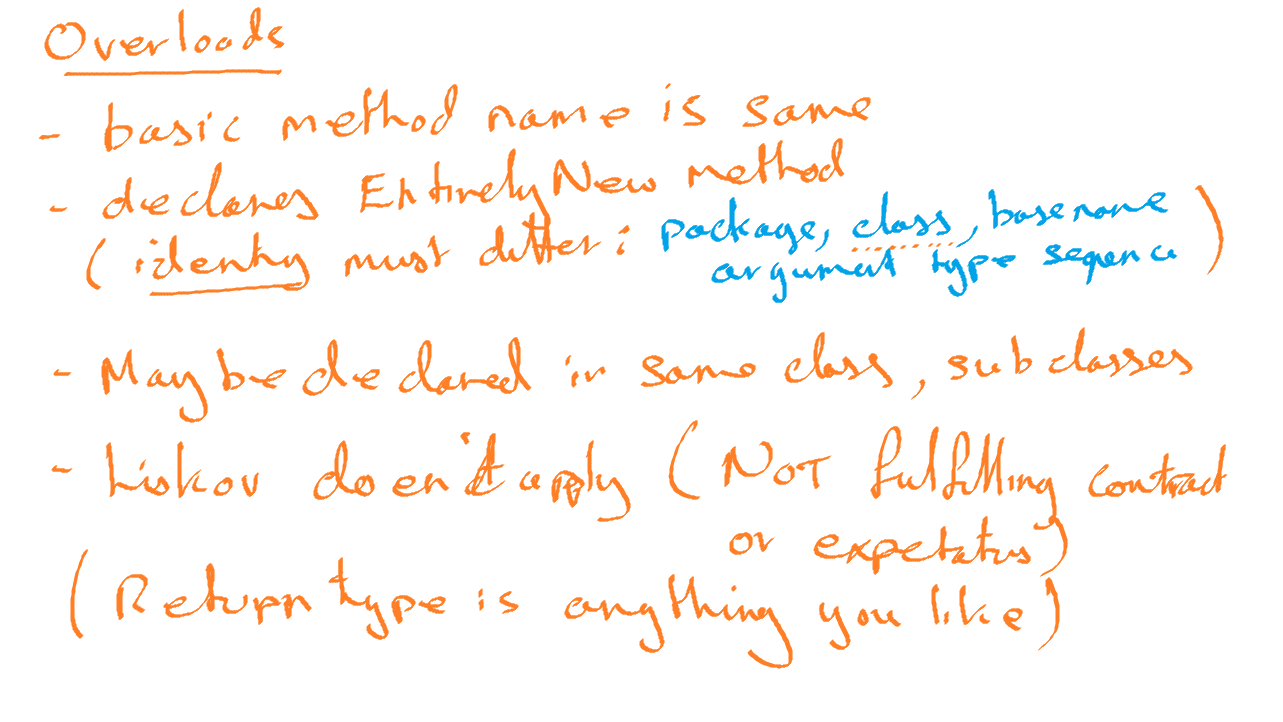 Overloads
- basic method name is same
- declares Entirely New method
(identity must differ: package, class, basename
argument type sequence)
- May be declared in same class, subclasses
- Liskov doen't apply (NOT fulfilling contract
or expectatus)
(Return type is anything you like)